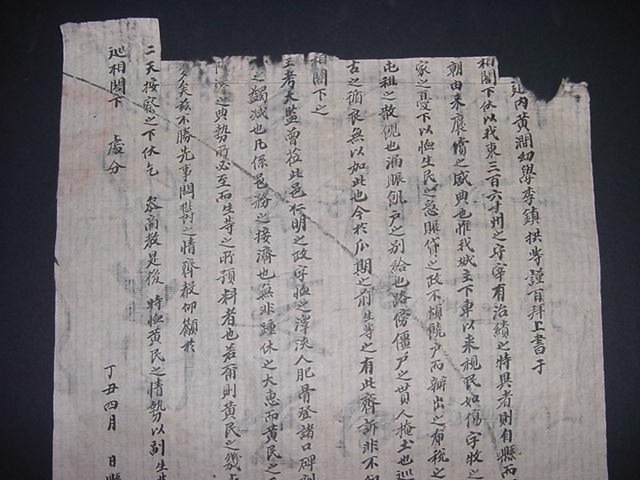 道內黃澗幼學李鎭拱等謹百拜上書于
相閤下伏以我東三百六十州之守宰有治績之特異者則自縣而
朝由來褒獎之盛典也惟我城主下車以來視民如傷字牧之
家之憂下以恤生民之急賑貸之政不煩饒戶而辦出之布稅之
屯租之散覼也涌賑飢戶之別給也路傍僵尸之貰人掩土也巡
古之循良無以加此也今於瓜期之前生等之有此齊訴非不知
相閤下之
王考大監曾莅此邑仁明之政字恤之澤浹人肥骨登諸口碑
之蠲減也凡係邑務之接濟也無非踵休之大惠而黃民之
之典勢所必至而生等之所預料者也若有則黃民之幾
矣玆不勝先事悶鬱之情齊聲仰籲於
二天按察之下伏乞 參商敎是後 特恤黃民之情勢以副生等
巡相閤下 處分
丁丑四月 日縣